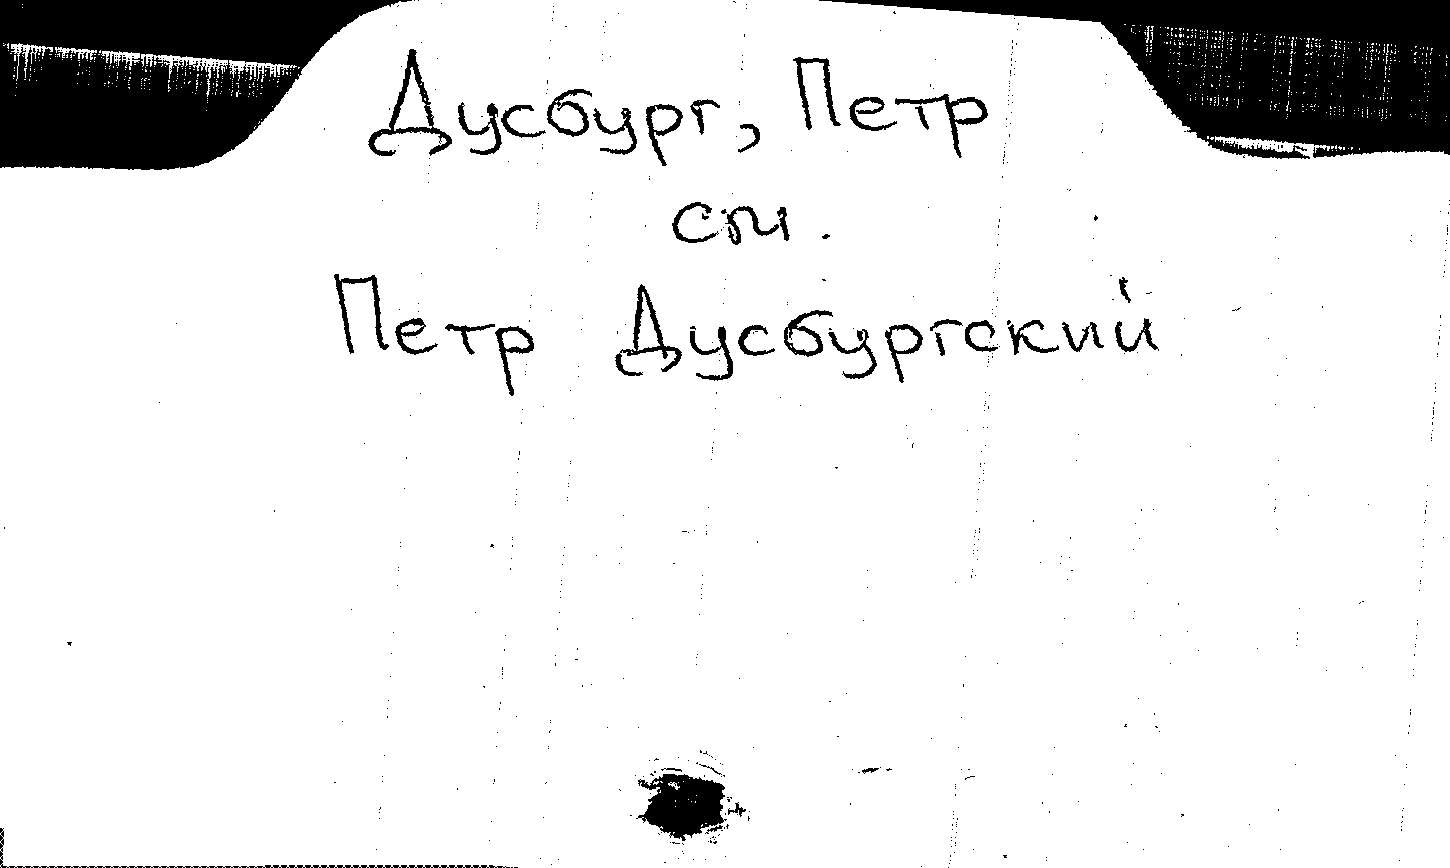 Дусбург, Петр
см.
Петр Дусбургский